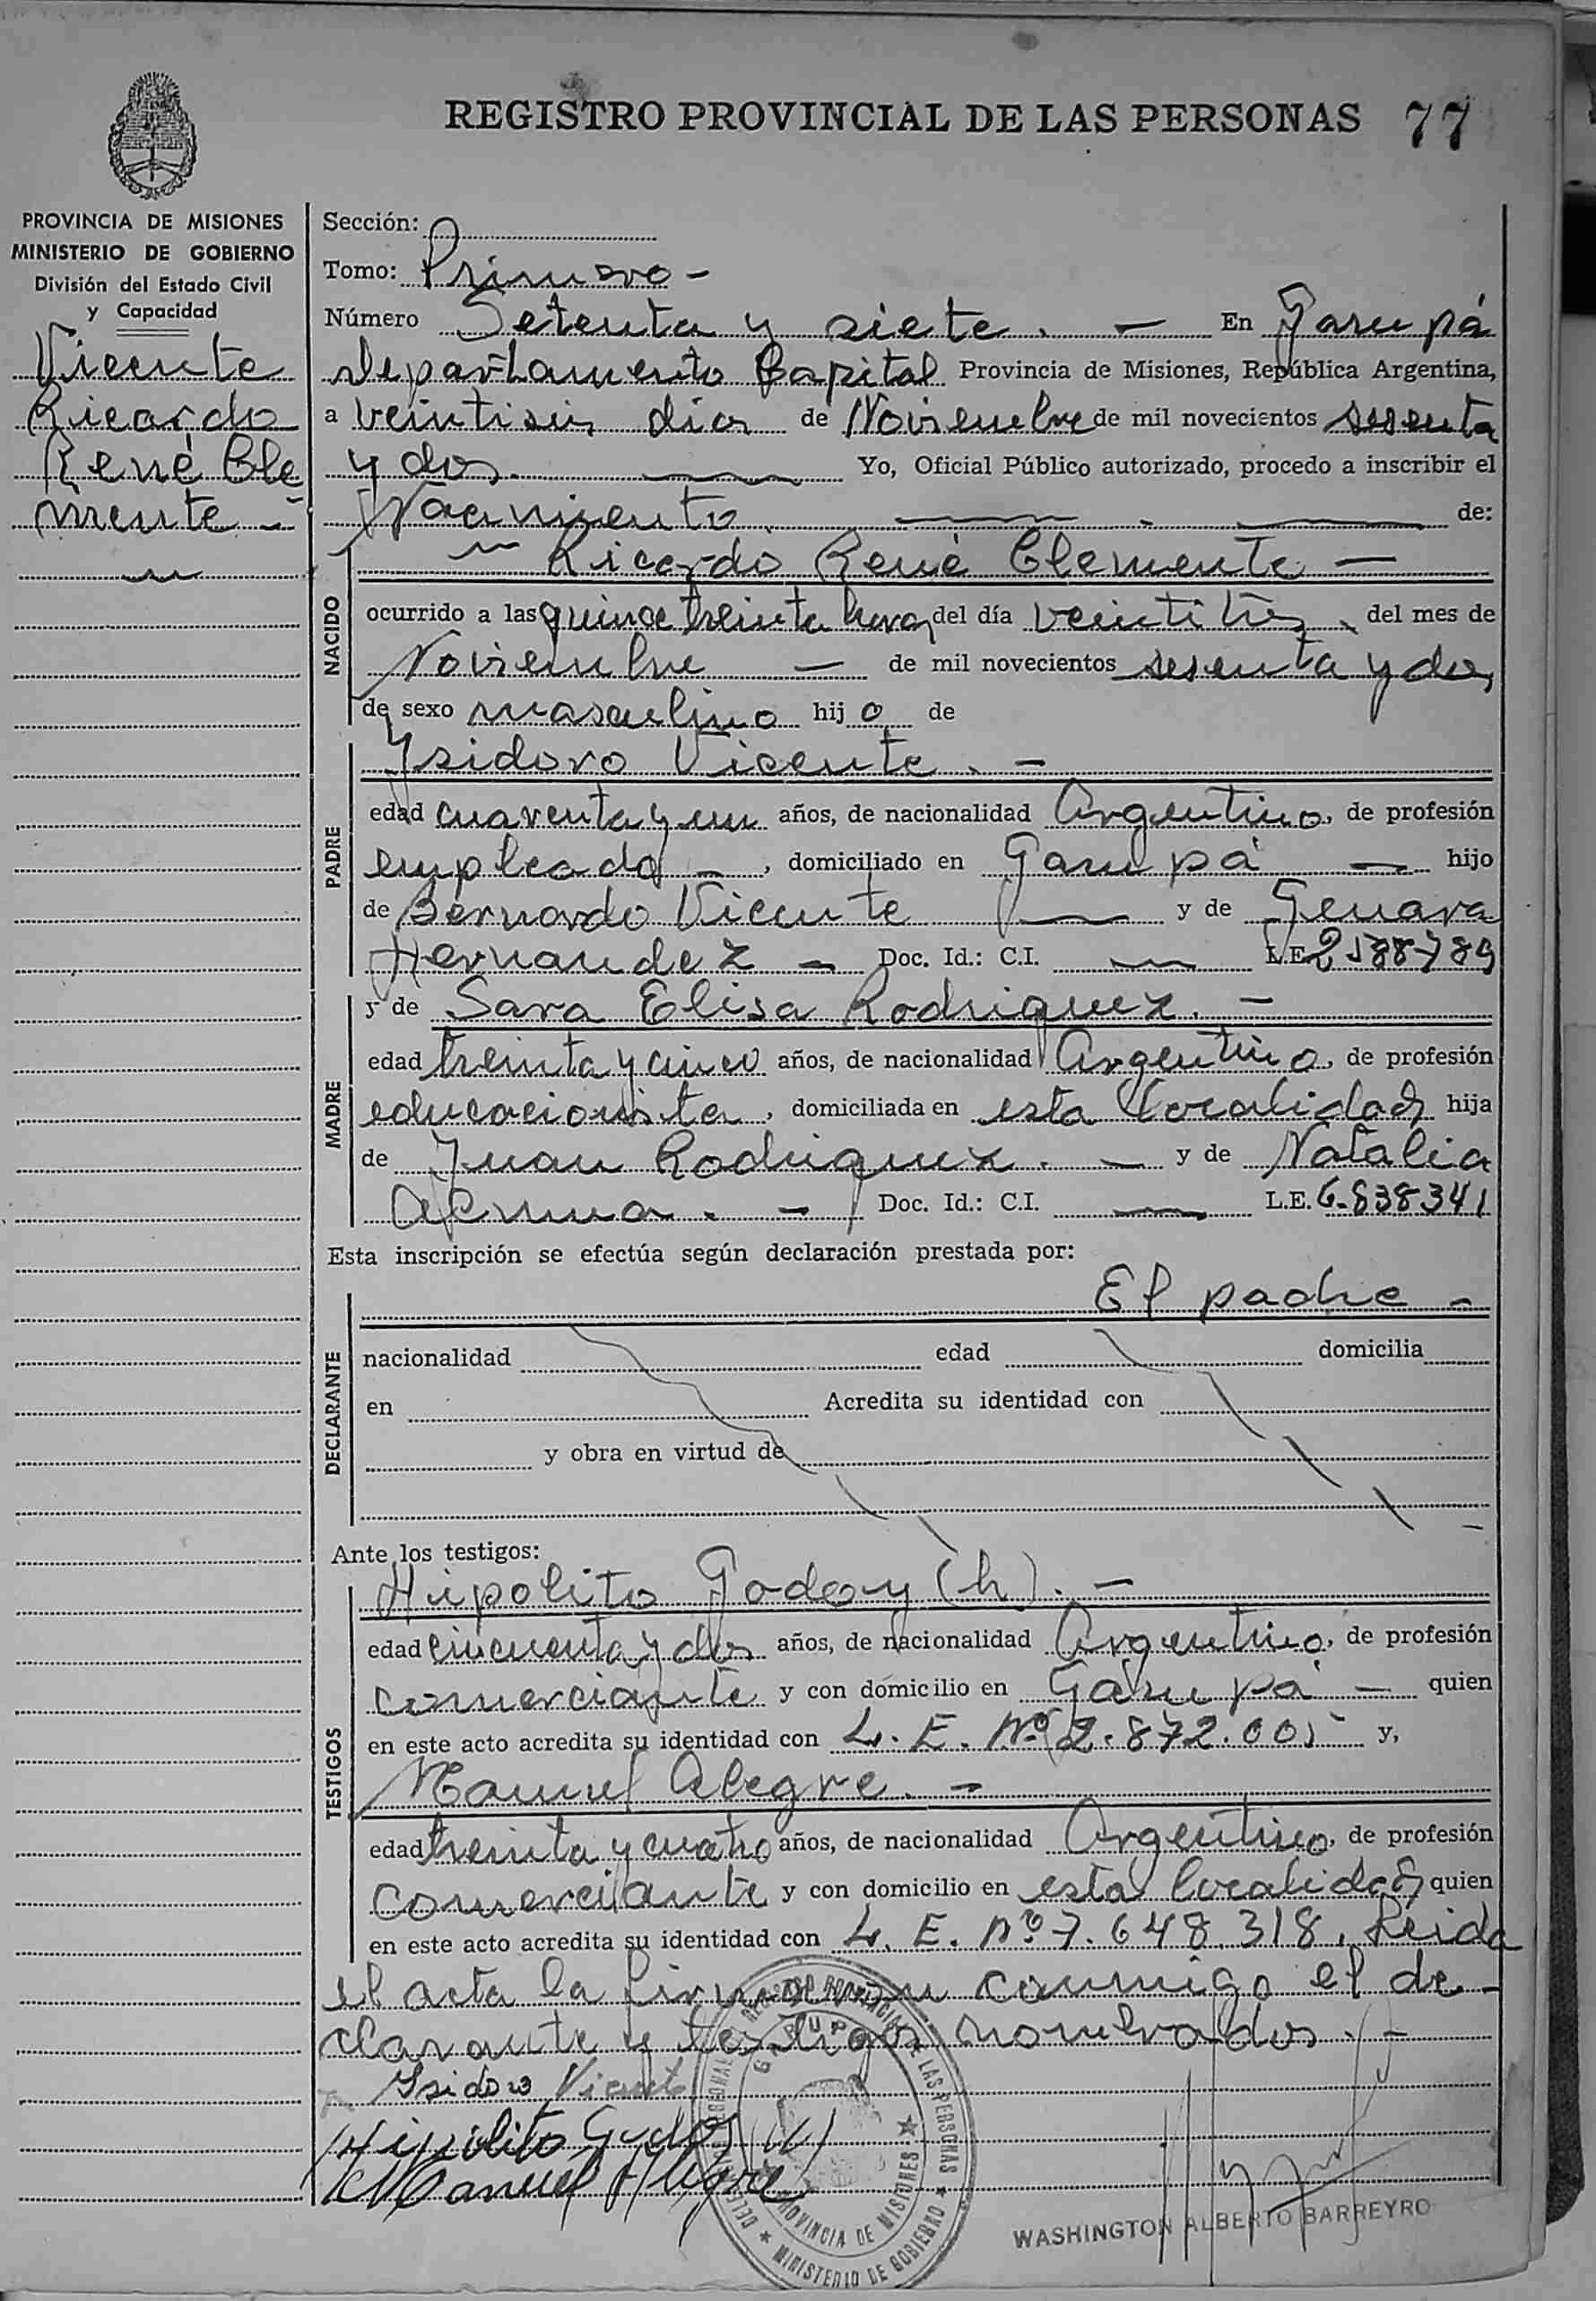 REGISTRO PROVINCIAL DE LAS PERSONAS 77
PROVINCIA DE MISIONES
MINISTERIO DE GOBIERNO
División del Estado Civil
y Capacidad
Vicente
Ricardo
René Cle
mente -
Sección:
Tomo: Primero -
Número Setenta y siete. - En Garupá
departamento Capital Provincia de Misiones, República Argentina,
a veintiseis días de Noviembre de mil novecientos sesenta
y dos. Yo, Oficial Público autorizado, procedo a inscribir el
Nacimiento de:
NACIDO
Ricardo René Clemente -
ocurrido a las quince treinta horas del día veintitres, del mes de
Noviembre - de mil novecientos sesenta y dos,
de sexo masculino hijo de
PADRE
Ysidoro Vicente. -
edad cuarenta y un años, de nacionalidad Argentino, de profesión
empleado -, domiciliado en Garupá - hijo
de Bernardo Vicente y de Genara
Hernandez - Doc. Id.: C.I. L.E.
MADRE
y de Sara Elisa Rodriguez. -
edad treinta y cinco años, de nacionalidad Argentina, de profesión
educacionista, domiciliada en esta localidad hija
de Juan Rodriguez. - y de Natalia
- Doc. Id.: C.I. L.E. 6.838341
Esta inscripción se efectúa según declaración prestada por:
DECLARANTE
El padre -
nacionalidad edad domicilia
en Acredita su identidad con
y obra en virtud de
Ante los testigos:
TESTIGOS
Hipolito Godoy (h). -
edad cincuenta y dos años, de nacionalidad Argentino, de profesión
comerciante y con domicilio en Garupá - quien
en este acto acredita su identidad con L. E. Nº 2.872.005 y,
Manuel Alegre. -
edad treinta y cuatro años, de nacionalidad Argentino, de profesión
comerciante y con domicilio en esta localidad quien
en este acto acredita su identidad con L. E. Nº 7.648.318. Leida
el acta la firman conmigo el de-
clarante y testigos nombrados. -
Isidoro Vicente
Hipólito Godoy (h)
Manuel Alegre
GARUPA
PROVINCIA DE MISIONES
REGISTRO PROVINCIAL DE LAS PERSONAS ★ MINISTERIO DE GOBIERNO ★
WASHINGTON ALBERTO BARREYRO